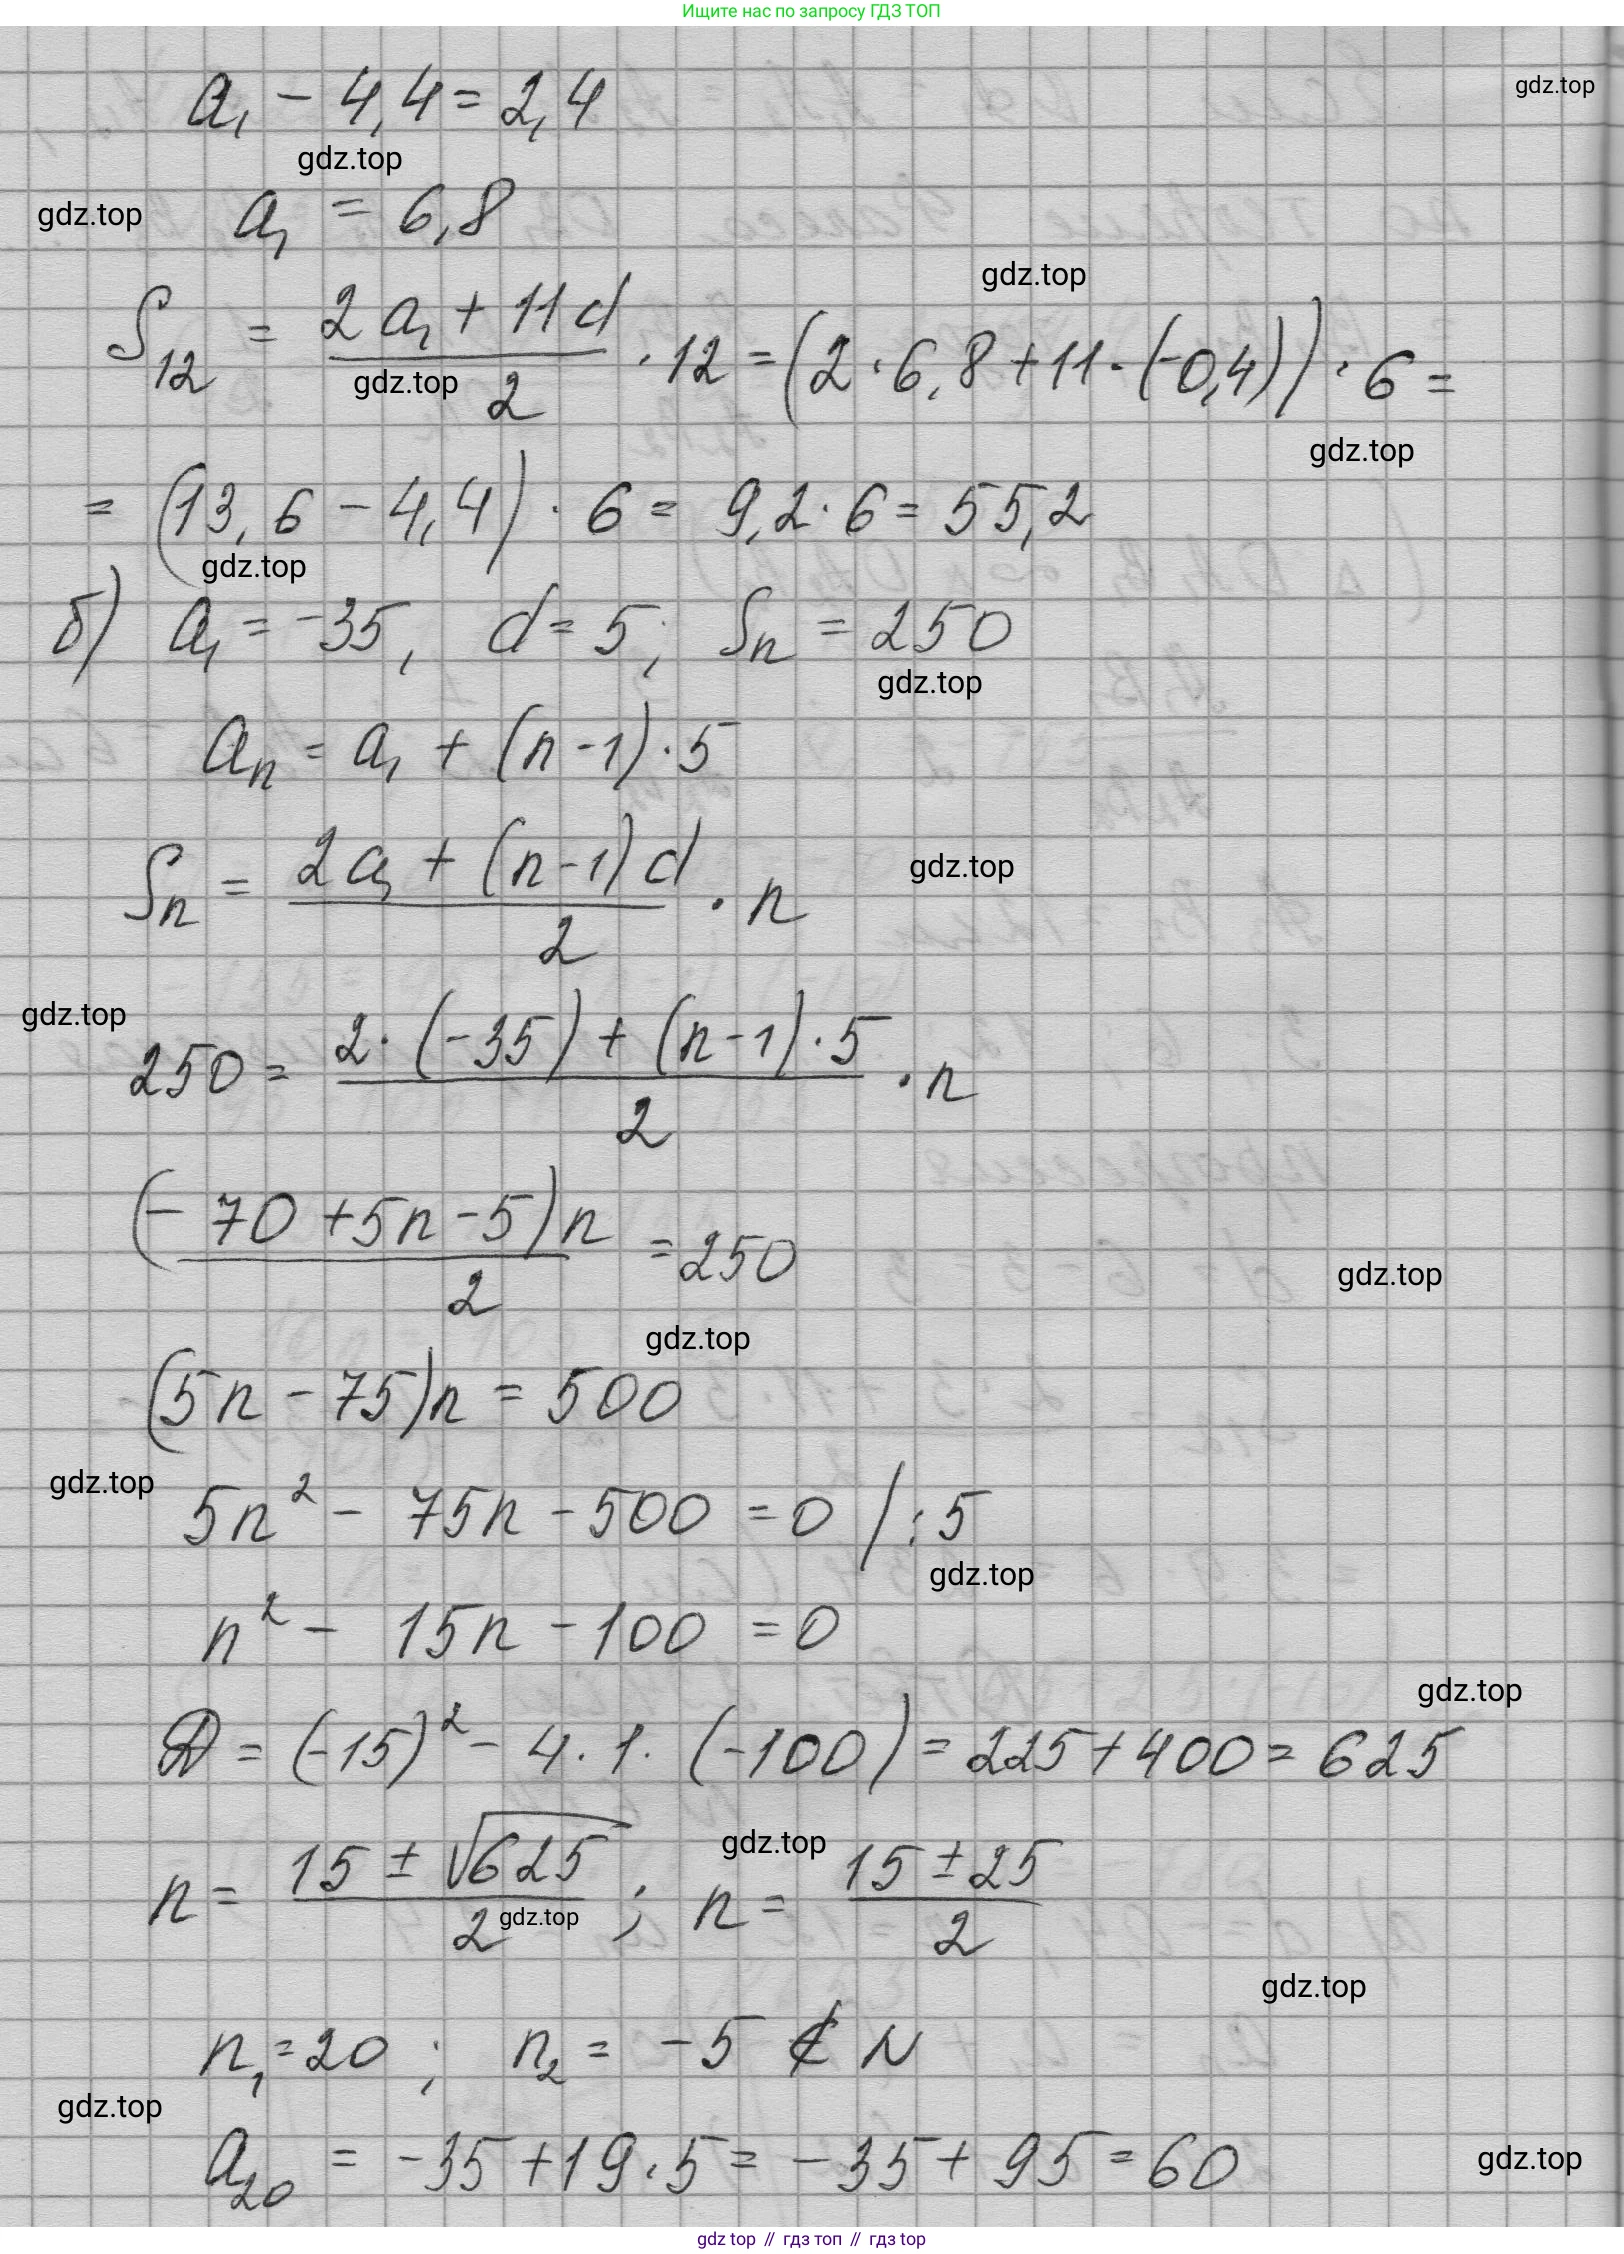 Ищите нас по запросу ГДЗ ТОП
gdz.top
a₁ - 4,4 = 2,4
gdz.top
gdz.top
a₁ = 6,8
gdz.top
S₁₂ = (2a₁ + 11d)/2 · 12 = (2 · 6,8 + 11 · (-0,4)) · 6 =
gdz.top
gdz.top
= (13,6 - 4,4) · 6 = 9,2 · 6 = 55,2
gdz.top
б) a₁ = -35, d = 5; Sₙ = 250
gdz.top
aₙ = a₁ + (n-1) · 5
Sₙ = (2a₁ + (n-1)d)/2 · n
gdz.top
gdz.top
250 = (2 · (-35) + (n-1) · 5)/2 · n
(-70 + 5n - 5)n/2 = 250
gdz.top
gdz.top
(5n - 75)n = 500
gdz.top
5n² - 75n - 500 = 0 / :5
gdz.top
n² - 15n - 100 = 0
gdz.top
D = (-15)² - 4 · 1 · (-100) = 225 + 400 = 625
gdz.top
n = (15 ± √625)/2 ; n = (15 ± 25)/2
gdz.top
gdz.top
n₁ = 20 ; n₂ = -5 ∉ N
gdz.top
a₂₀ = -35 + 19 · 5 = -35 + 95 = 60
gdz.top
gdz top // гдз топ // gdz top